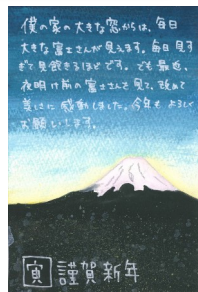 僕の家の大きな窓からは、毎日
大きな富士さんが見えます。毎日見す
ぎて見飽きるほどです。でも最近、
夜明け前の富士さんを見て、改めて
美しさに感動しました。今年もよろしく
お願いします。
寅 謹賀新年